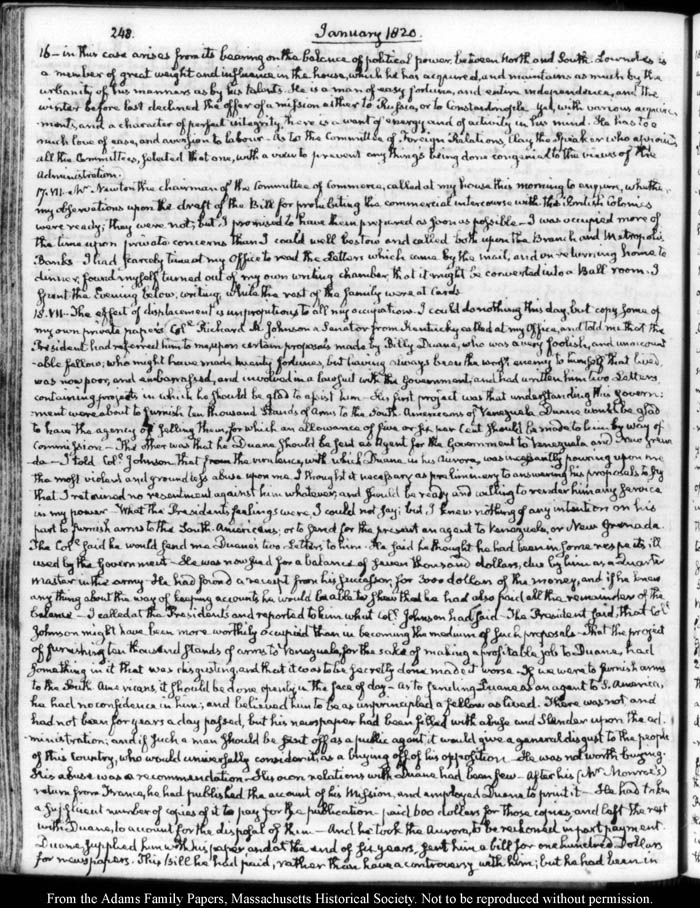 248. January 1820.
16 – in this case arises from its bearing on the balance of political power, between North and South. Lowndes is
a member of great weight and influence in the house, which he has acquired, and maintains as much by the
urbanity of his manners as by his talents. He is a man of easy fortune, and entire independence, and the
winter before last declined the offer of a mission either to Russia, or to Constantinople. Yet, with various acquire-
ments, and a character of perfect integrity, there is a want of energy and of activity in his mind. He has too
much love of ease, and aversion to labour. As to the Committee of Foreign Relations, Clay the Speaker who appoints
all the Committees, selected that one, with a view to prevent any thing's being done congenial to the views of the
Administration.
17. VII. Mr. Newton the chairman of the Committee of Commerce, called at my house this morning to enquire, whether
my observations upon the draft of the Bill for prohibiting the commercial intercourse with the British Colonies
were ready; they were not; but I promised to have them prepared as soon as possible. I was occupied more of
the time upon private concerns than I could well bestow and called both upon the Branch and Metropolis
Banks. I had scarcely time at my Office to read the Letters which came by the mail, and on returning home to
dinner, found myself turned out of my own writing chamber, that it might be converted into a Ball room. I
spent the Evening below, writing, while the rest of the family were at Cards.
18. VII. The effect of displacement is unpropitious to all my occupations. I could do nothing this day, but copy some of
my own private papers. Coll. Richard M. Johnson a Senator from Kentucky called at my Office, and told me that the
President had referred him to me, upon certain proposals made by Billy Duane, who was a very foolish, and unaccount-
able fellow, who might have made twenty fortunes, but having always been the worst enemy to himself that lived,
was now poor, and embarrassed, and involved in a lawsuit with the Government, and had written him two Letters
containing projects in which he should be glad to assist him. His first project was that understanding this Govern-
ment were about to furnish ten thousand Stands of Arms to the South-Americans of Venezuela, Duane would be glad
to have the agency of selling them, for which an allowance of five or six per Cent should be made to him by way of
Commission – The other was that he Duane should be sent as Agent for the Government to Venezuela and New Grena-
da – I told Coll. Johnson that from the virulence, with which Duane in his Aurora, was incessantly pouring upon me
the most violent and groundless abuse upon me, I thought it necessary as preliminary to answering his proposals to say
that I retained no resentment against him whatever, and should be ready and willing to render him any service
in my power. What the President's feelings were, I could not say; but I knew nothing of any intention on his
part to furnish arms to the South-Americans; or to send for the present an agent to Venezuela, or New Grenada.
The Coll. said he would send me Duane's two Letters to him. He said he thought he had been in some respects ill
used by the Government – He was now sued for a balance of seven thousand dollars, due by him as a Quarter
Master in the army. He had found a receipt from his successor, for 3000 dollars of the money, and if he knew
any thing about the way of keeping accounts he would be able to shew that he had also paid all the remainder of the
balance – I called at the President's and reported to him what Coll. Johnson had said. The President said, that Coll.
Johnson might have been more worthily occupied than in becoming the medium of such proposals – That the project
of furnishing ten thousand Stands of arms to Venezuela, for the sake of making a profitable job to Duane, had
something in it that was disgusting, and that it was to be secretly done made it worse. If we were to furnish arms
to the South Americans, it should be done openly in the face of day – As to sending Duane as an agent to S. America,
he had no confidence in him; and believed him to be as unprincipled a fellow as lived. There was not and
had not been for years a day passed, but his newspaper had been filled with abuse and Slander upon the ad-
ministration; and if such a man should be sent off as a public agent it would give a general disgust to the people
of this Country, who would universally consider it, as a buying off of his opposition – He was not worth buying.
His abuse was a recommendation – His own relations with Duane had been few – After his (Mr. Monroe's)
return from France, he had published the account of his Mission, and employed Duane to print it – He had taken
a sufficient number of copies of it to pay for the publication – paid 600 dollars for those copies, and left the rest
with Duane, to account for the disposal of them – And he took the Aurora, to be reckoned in part payment.
Duane supplied him with his paper and at the end of six years, sent him a bill for one hundred Dollars
for newspapers. This Bill he had paid, rather than have a controversy with him; but he had been in
From the Adams Family Papers, Massachusetts Historical Society. Not to be reproduced without permission.